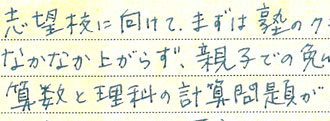 志望校に向けて、まずは塾のク
なかなか上がらず、親子での
算数と理科の計算問題が